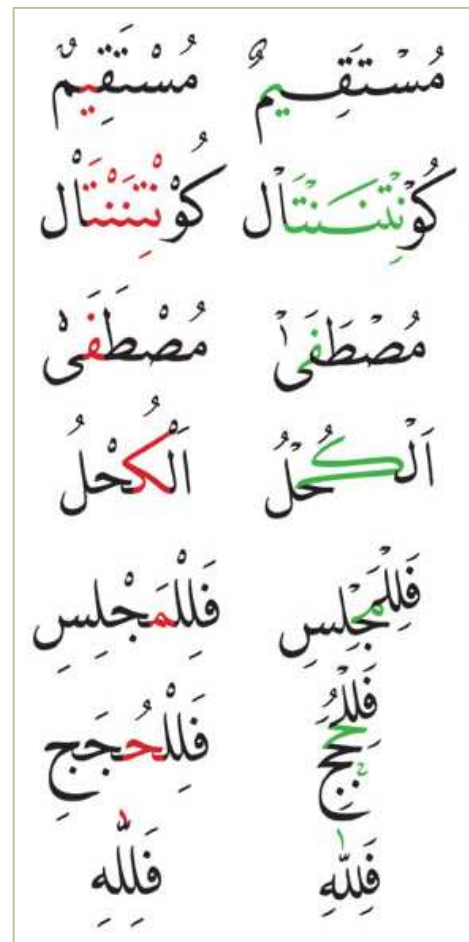 مُسْتَقِيمٌ مُسْتَقِيمٌ
كُوْنْتِنَنْتَاْل كُوْنْتِنَنْتَاْل
مُصْطَفَىٰ مُصْطَفَىْ
اَلْكُحْلُ اَلْكُحْلُ
فَلِلْمَجْلِسِ فَلِلْمَجْلِسِ
فَلِلْحُجَجِ فَلِلْحُجَجِ
فَلِلّٰهِ فَلِلّٰهِ